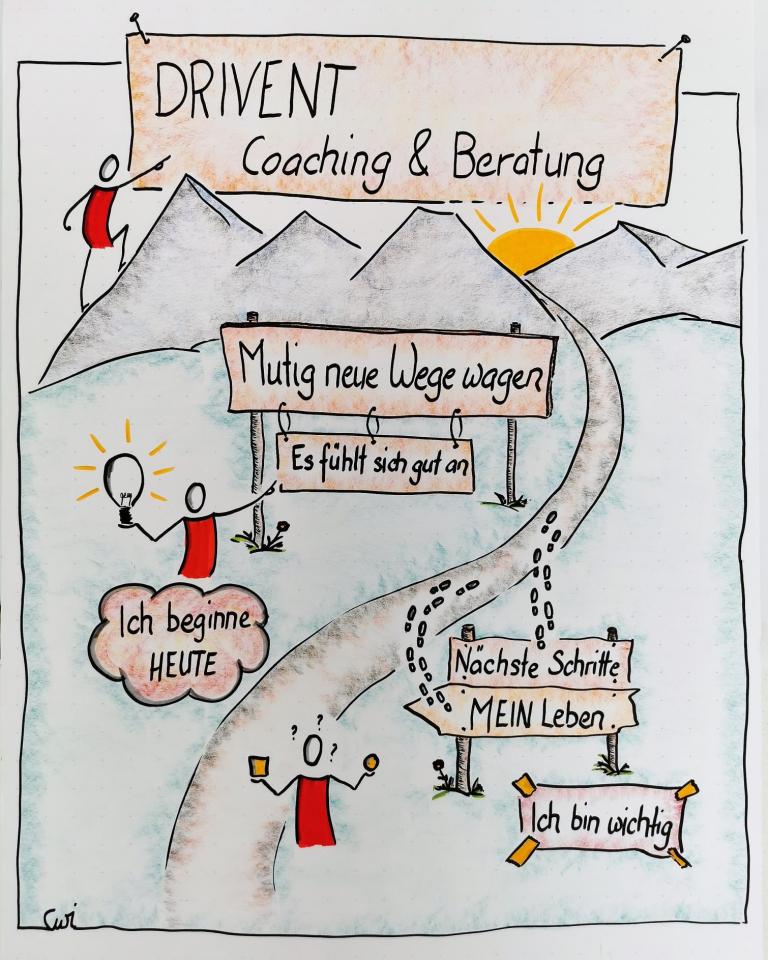 DRIVENT
Coaching & Beratung
Mutig neue Wege wagen
Es fühlt sich gut an
Ich beginne
HEUTE
Nächste Schritte
MEIN Leben
? ? ?
Ich bin wichtig